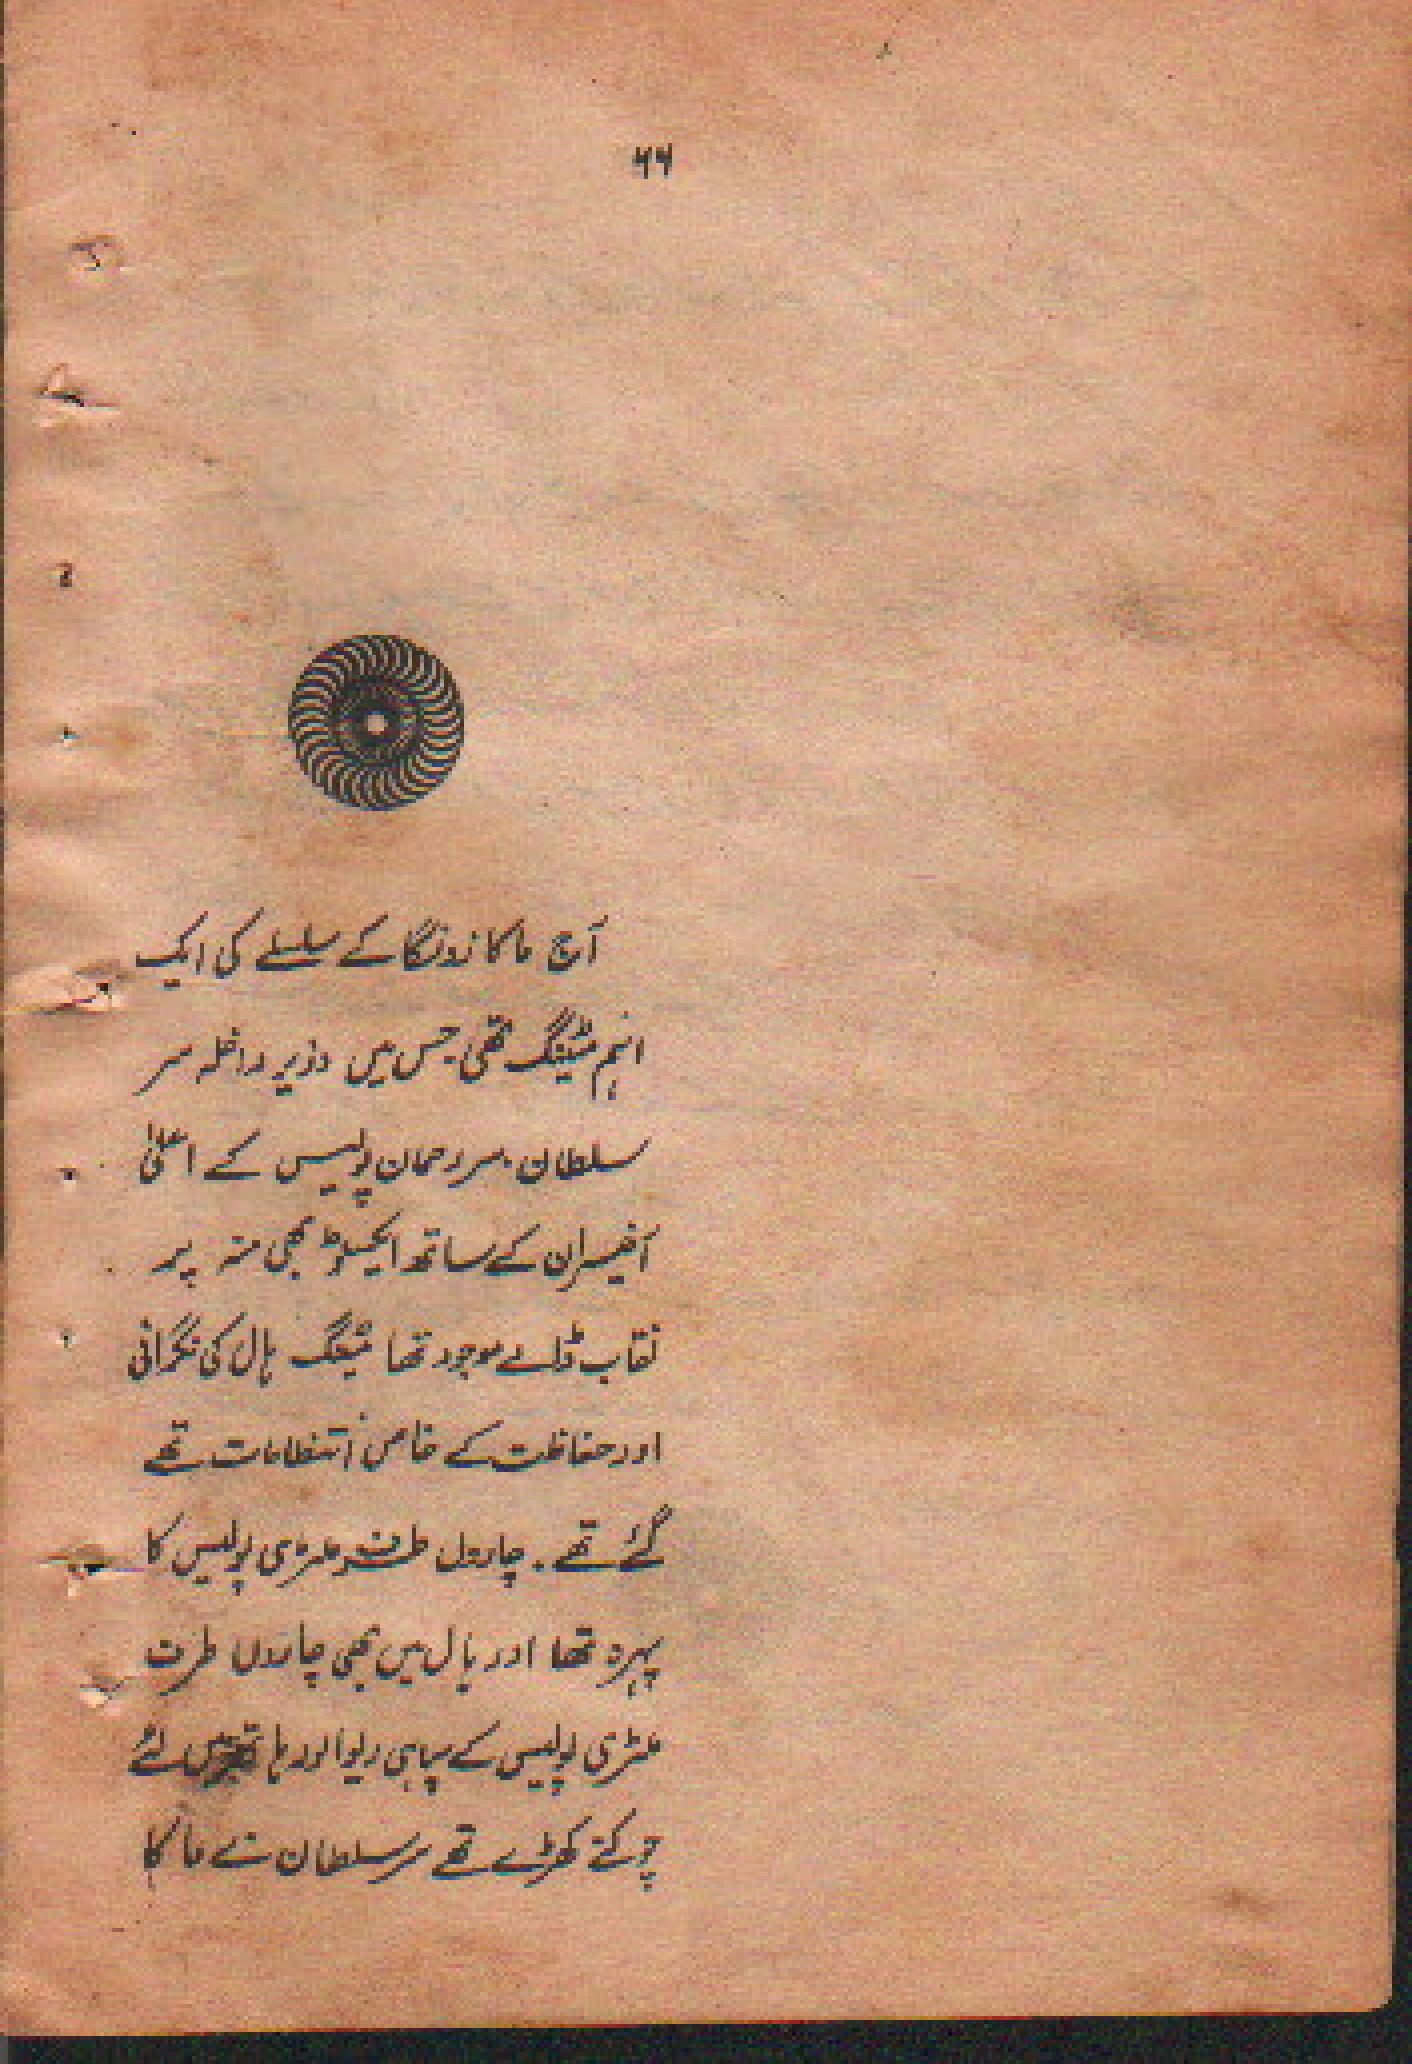 ۶۶
آج ماکازونگا کے سلسلے کی ایک
اہم میٹنگ تھی۔ جس میں وزیر داخلہ سر
سلطان۔ سر رحمان پولیس کے اعلیٰ
آفیسران کے ساتھ ایکسٹو بھی منہ پر
نقاب ڈالے موجود تھا میٹنگ ہال کی نگرانی
اور حفاظت کے خاص انتظامات تھے
گئے تھے۔ چاروں طرف ملٹری پولیس کا
پہرہ تھا اور ہال میں بھی چاروں طرف
ملٹری پولیس کے سپاہی ریوالور ہاتھ میں لئے
چوکنے کھڑے تھے سر سلطان نے ماکا